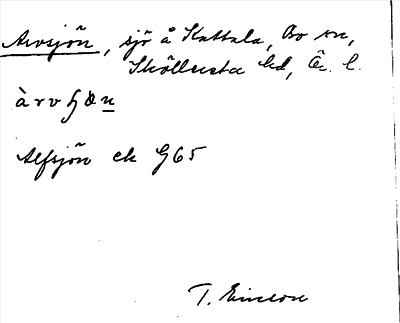 Arvsjön, sjö å Kattala, Bo sn,
Sköllersta hd, Ör. l.
àrvɧøn
Alfsjön ek G65
T. Ericson